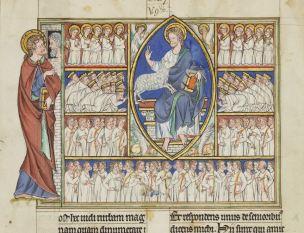 hec uidi turbam mag
nam quam dinumerare
Et respondens unus de senioribus
dicens michi. Hii sunt qui amic